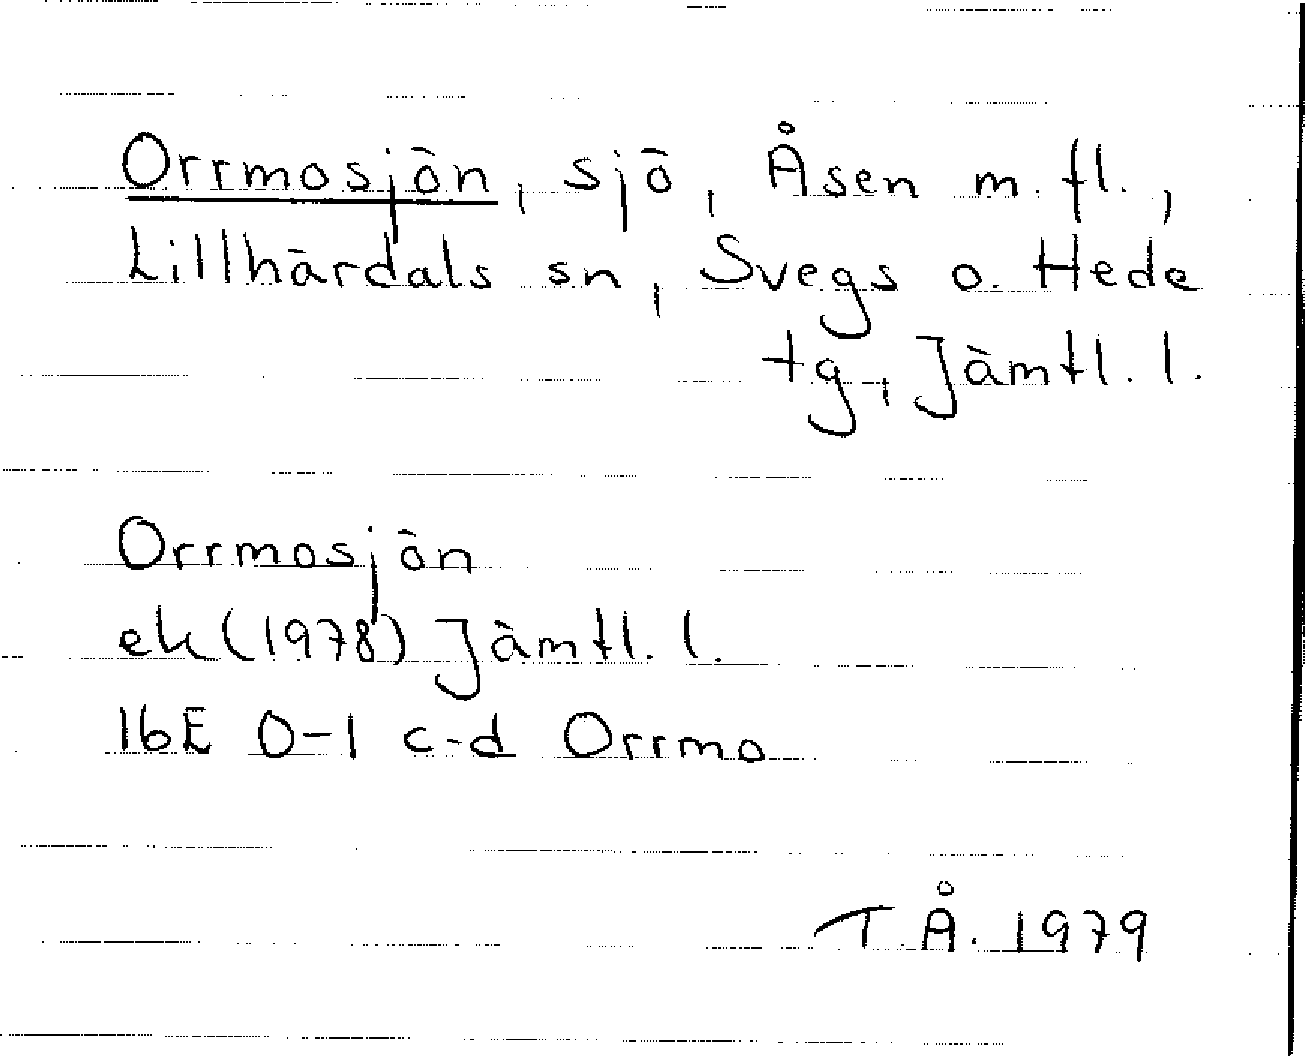 Orrmosjön, sjö, Åsen m.fl.,
Lillhärdals sn, Svegs o. Hede
tg, Jämtl. l.
Orrmosjön
ek (1978) Jämtl. l.
16E 0-1 c-d Orrmo
T.Å. 1979